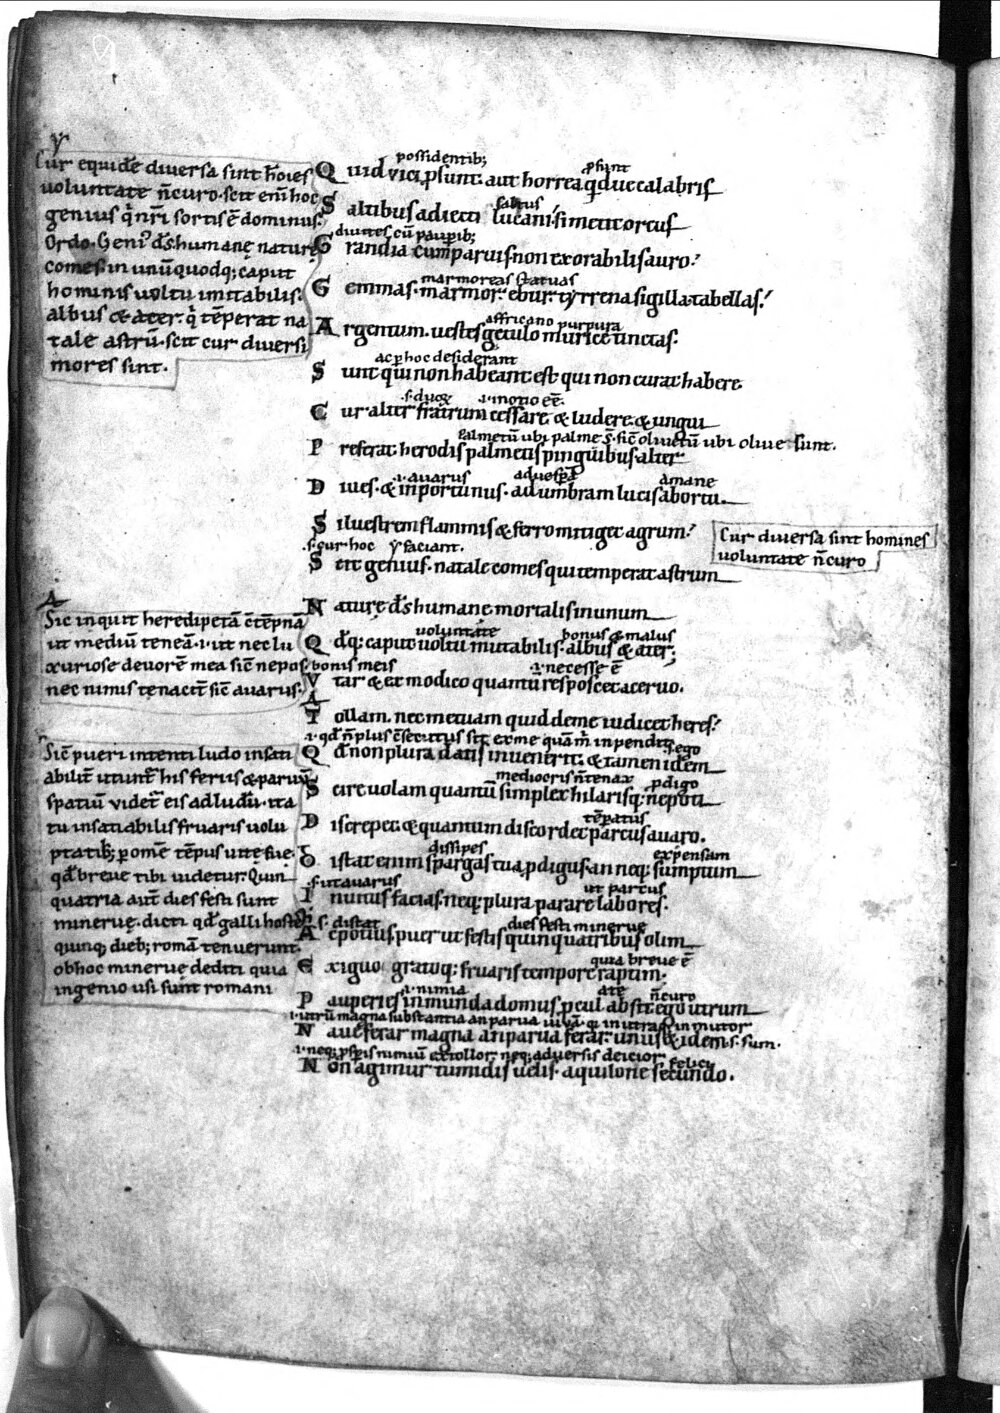 Cur equidē diversa sint hōies
uoluntate n̄ curo. scit eni̅ hoc
genius q̇ nr̄i sortis ē dominus.
Ordo. Geni' d̄s humanę naturę
comes. in unu̅quodq; caput
hominis uoltu imitabilis.
albus & ater. q̇ tēperat na
tale astrū. scit cur diversi
mores sint.
possidentib; ꝓsunt
Quid vici ꝓsunt. aut horrea. q̇due calabris
saltus
Saltibus adiecti lucani. si metit orcus
diuites cū paupib;
Grandia cum paruis. non exorabilis auro?
marmoreas statuas
Gemmas. marmor. ebur. tyrrena sigilla. tabellas?
affricano purpura
Argentum. uestes getulo murice tinctas.
ac ꝑ hoc desiderant
Sunt qui non habeant. est qui non curat habere
.s. duoꝝ .i. inotio eē.
Cur alter fratrum cessare & ludere & ungui
Palmetū ubi palme s̄. sic̄ oliuetū ubi oliue sunt.
Preferat herodis palmetis pinguibus alter
.i. auarus aduesꝑa amane
Diues. & inportunus. ad umbram lucis abortu.
Siluestrem flammis & ferro mitiget agrum?
Cur diuersa sint homines
uoluntate n̄ curo
.s. cur hoc ẏ faciant.
Scit genius. natale comes qui temperat astrum
Naturę d̄s humanę mortalis inunum
uoluntate bonus & malus
Qd̄q; caput. uoltu mutabilis. albus & ater;
Sic inquit heredipetā c̄tēpnā
ut mediū teneā .i. ut nec lu
xuriose deuorē mea sic̄ nepos bonis meis
nec nimis tenacit̄ sic̄ auarus.
.i. necesse ē
Vtar & ex modico quantū res poscet aceruo.
Tollam. nec metuam quid deme iudicet heres?
.i. qd̄ n̄ plus c̄secutus sit exme quam̄ inpendit. ego
Qd̄ non plura datis inuenerit. & tamen idem
mediocris n̄ tenax ꝓdigo
Scire uolam quantū simplex hilarisq; nepoti
tēperatus
Discrepet. & quantum discordet parcus auaro.
dissipes expensam
Distat enim spargas tua ꝓdigus. an neq; sumptum
.s. ut auarus ut parcus
Inuitus facias. neq; plura parare labores.
.s. distat dies festi minerue
Ac potius puer ut festis quinquatribus olim
quia breue ē
Exiguo gratoq; fruaris tempore raptim.
Sic̄ pueri intenti ludo insati
abilit̄ utunt̄ his feriis & paruū
spatiū videt̄ eis ad ludū. ita
tu insatiabilis fruaris uolu
ptatib; ꝑ omē tēpus uite tuę
qd̄ breue tibi uidetur. Quin
quatria aut̄ dies festi sunt
minervę. dicti qd̄ galli hostes
quinq; dieb; romā tenuerunt.
obhoc minervę dediti quia
ingenio usi sunt romani
.i. nimia ate n̄ curo
Pauperies inmunda domus ꝓcul absit. ego utrum
.i. utrū magna substantia an parua
Naue ferar magna an parua ferar. unus & idem .s. sum.
.i. neq; ꝓsꝑis nimiū extollor. neq; aduersis deicior. felici
Non agimur tumidis uelis. aquilone secundo.